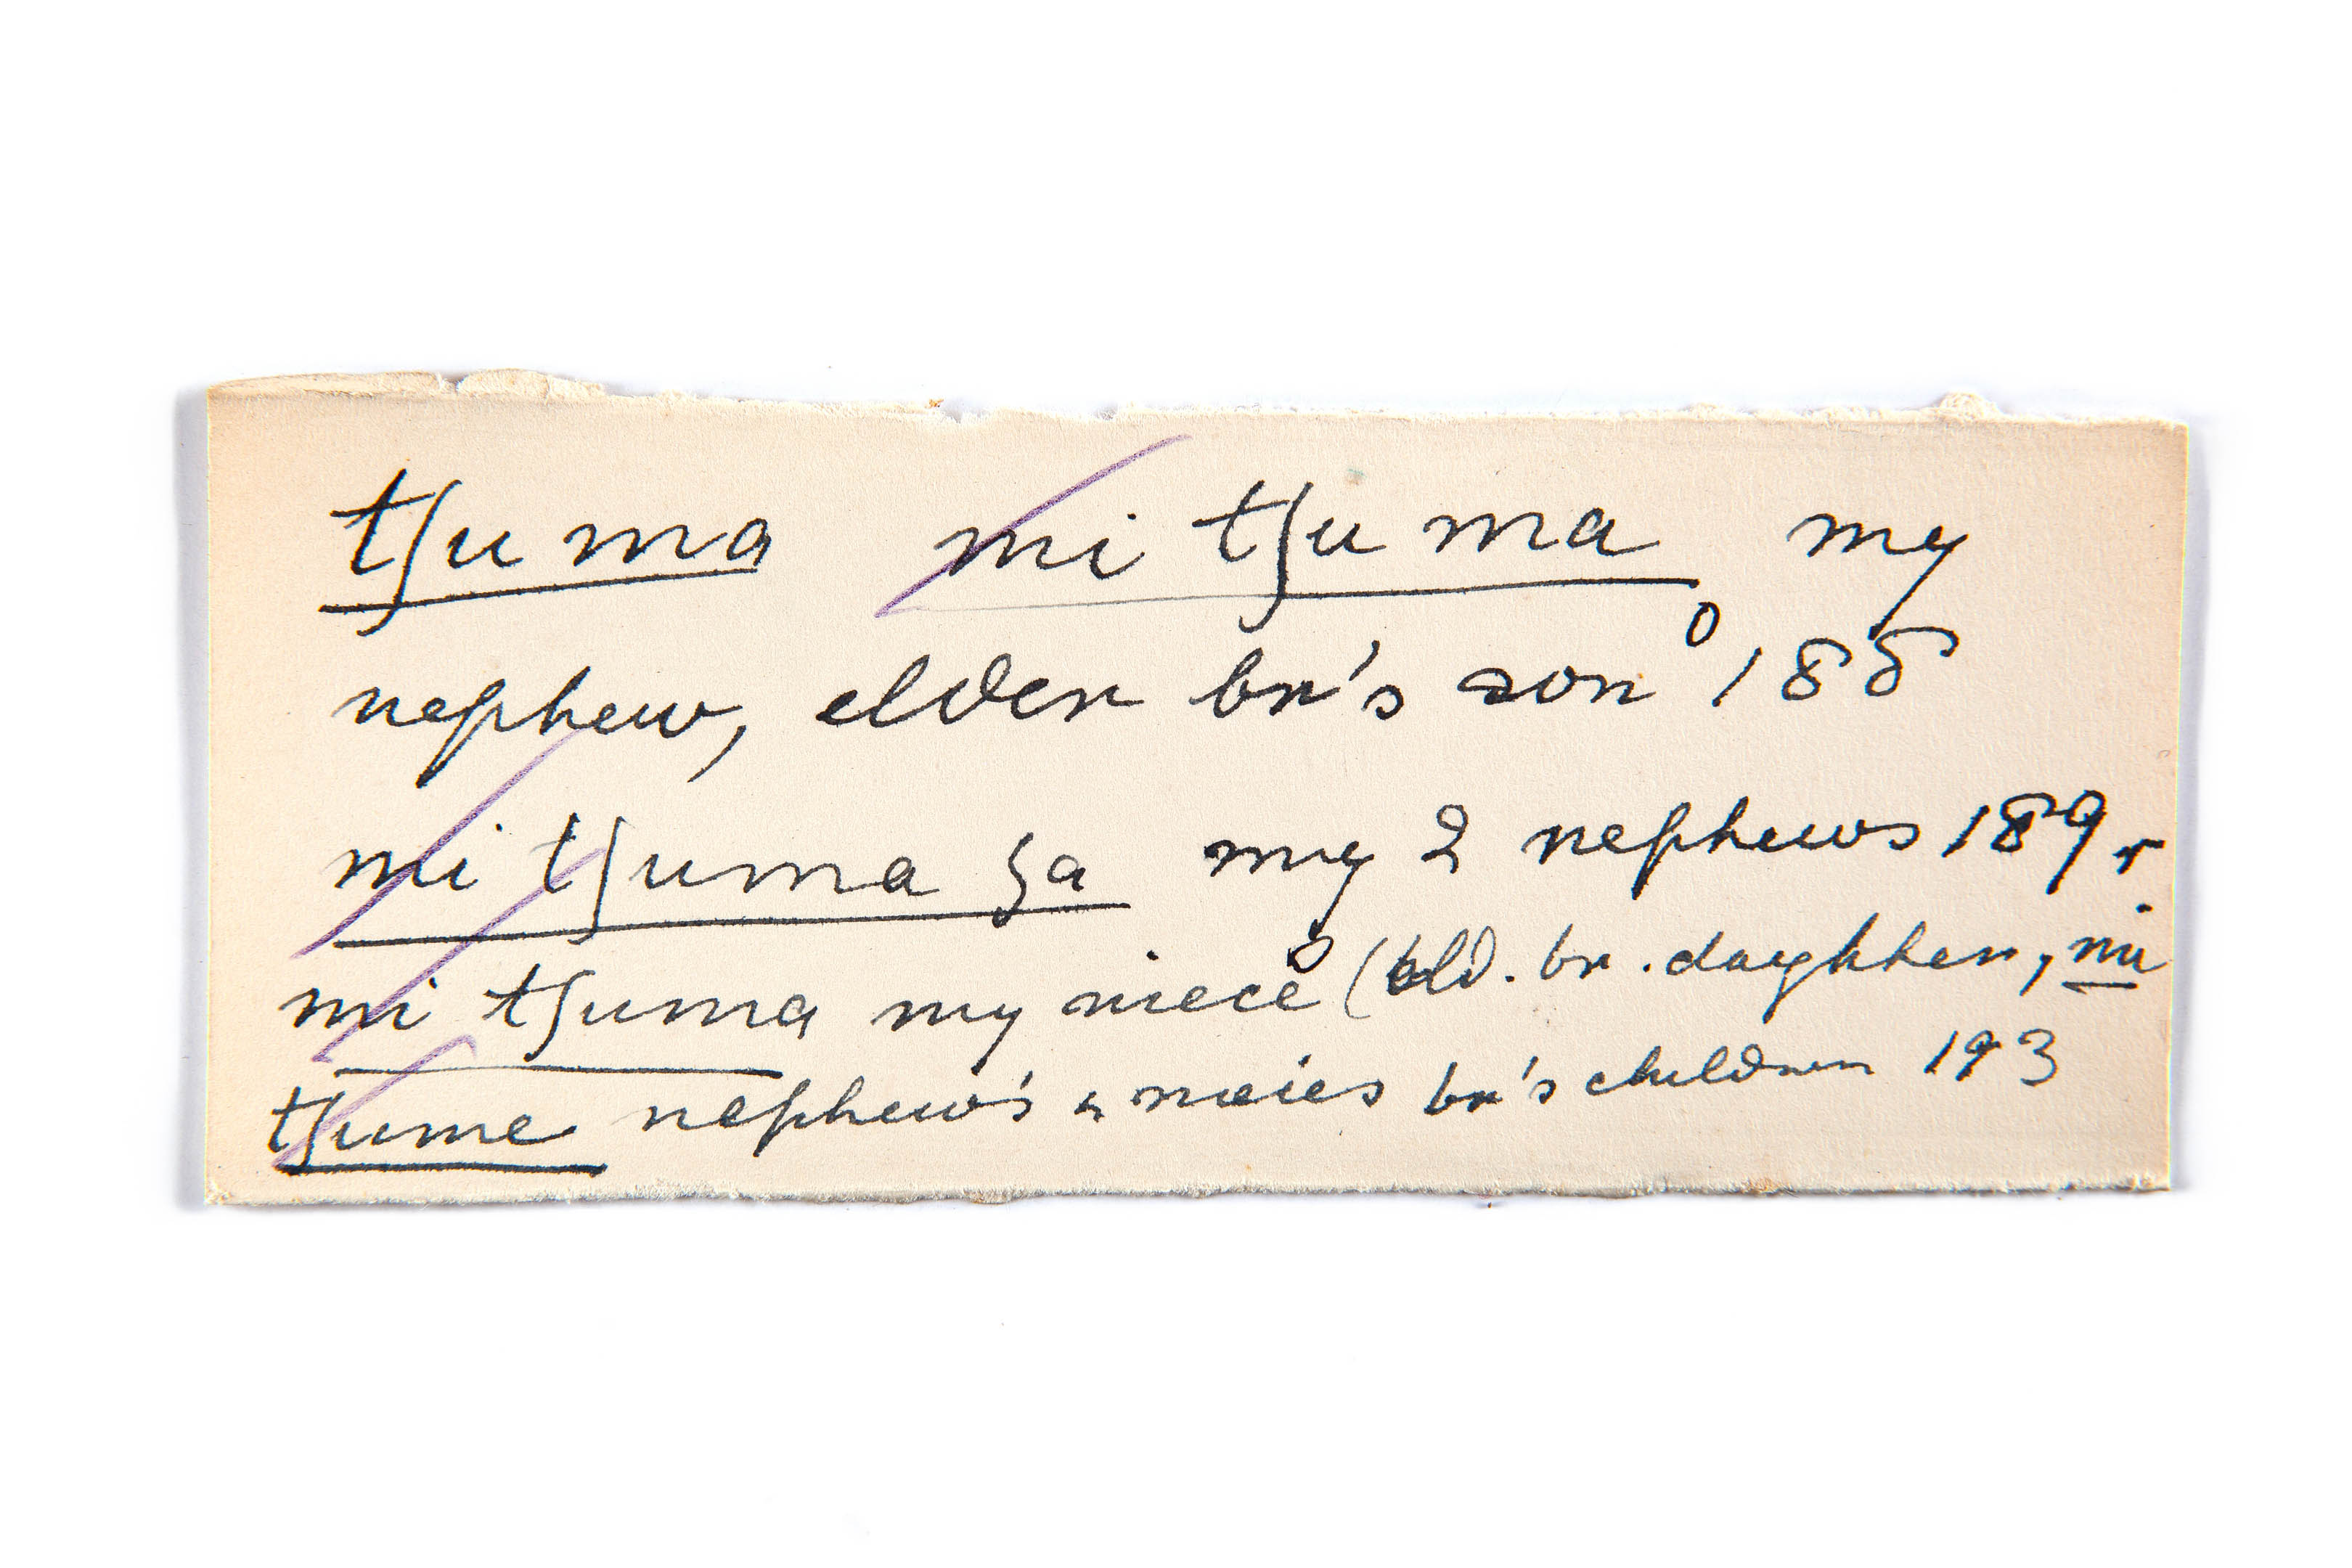 tʃuma mi tʃuma my
nephew, elder br's son 188
mi tʃuma ʒa my 2 nephews 189 r
mi tʃuma my niece (eld. br. daughter, mi
tʃume nephew's & nieces br's children 193